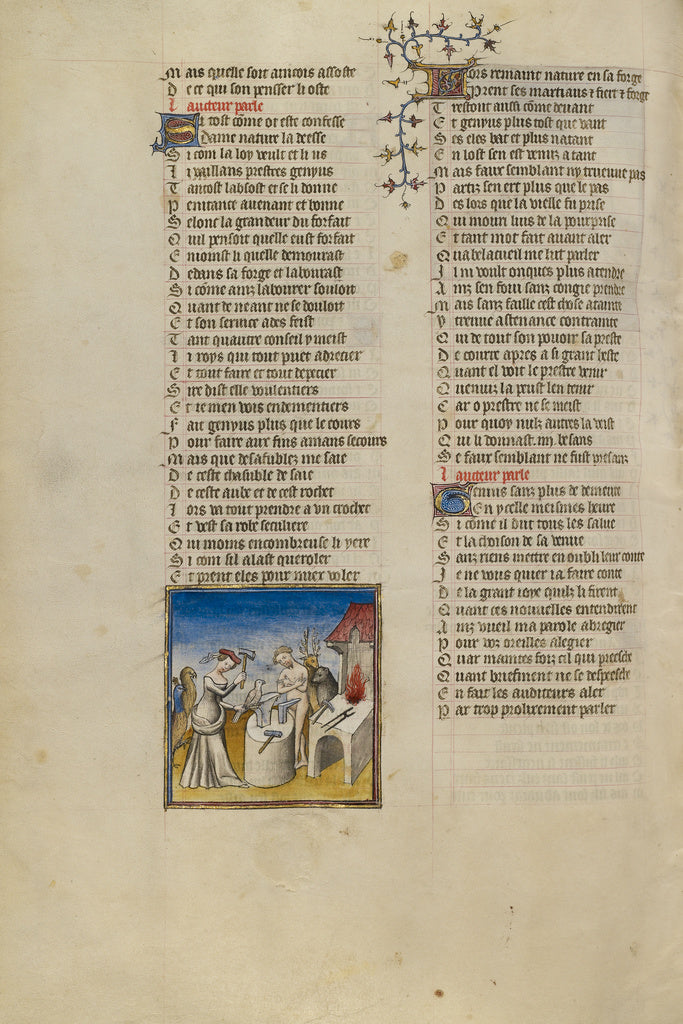 Mais quelle soit aincois assoste
De ce qui son penser li oste
Laucteur parle
Si tost come or este confesse
Dame nature la deesse
Si com la loy veult et li us
Li vaillans prestres genyus
Tantost labsost et se li donne
Penitance auenant et bonne
Selonc la grandeur du forfait
Quil pensoit quelle eust forfait
Enioinst li quelle demourast
Dedans sa forge et labourast
Si come ainz labourer souloit
Quant de neant ne se douloit
Et son seruice ades feist
Tant quautre conseil y meist
Li roys qui tout puet adrecier
Et tout faire et tout depecier
Sire dist elle voulentiers
Et ie men vois endementiers
Fait genyus plus que le cours
Pour faire aux fins amans secours
Mais que desafublez me saie
De ceste chasuble de saie
De ceste aube et de cest rochet
Lors va tout prendre a un crochet
Et vest sa robe seculiere
Qui moins encombreuse li yere
Si com sil alast queroler
Et prent eles pour miex voler
Lors remaint nature en sa forge
Prent ses martiaus et fiert et forge
Trestout aussi come deuant
Et genyus plus tost que vant
Ses eles bat et plus natant
En lost sen est venuz a tant
Mais faux semblant ny trueuue pas
Partiz sen ert plus que le pas
Des lors que la vielle fu prise
Qui mouri luis de la pourprise
Et tant mot fait auant aler
Qua belacueil me lut parler
Il ni voult onques plus atendre
Ainz sen foui sanz congie prendre
Mais sanz faille cest chose atainte
Y treuue astenance contrainte
Qui de tout son pouoir sapreste
De courre apres a si grant heste
Quant el voit le prestre venir
Quenuiz la peust len tenir
Car o prestre ne se meist
Pour quoy nulz autres la veist
Qui li donnast .m. besans
Se faux semblant ne fust presanz
Laucteur parle
Genius sanz plus de demeure
En ycelle meismes heure
Si come il dut tous les salue
Et lachoison de sa venue
Sanz riens mettre en oubli leur conte
Ie ne vous quier ia faire conte
De la grant ioye quilz li firent
Quant ces nouuelles entendirent
Ainz vueil ma parole abregier
Pour voz oreilles alegier
Quar maintes foiz cil qui preesche
Quant briefment ne se despeesche
En fait les auditeurs aler
Par trop prolixement parler